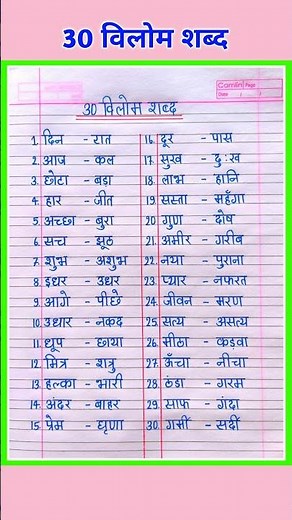 30 विलोम शब्द
Camlin Page
Date
30 विलोम शब्द
1. दिन - रात
2. आज - कल
3. छोटा - बड़ा
4. हार - जीत
5. अच्छा - बुरा
6. सच - झूठ
7. शुभ - अशुभ
8. इधर - उधर
9. आगे - पीछे
10. उधार - नकद
11. धूप - छाया
12. मित्र - शत्रु
13. हल्का - भारी
14. अंदर - बाहर
15. प्रेम - घृणा
16. दूर - पास
17. सुख - दुःख
18. लाभ - हानि
19. सस्ता - महँगा
20. गुण - दोष
21. अमीर - गरीब
22. नया - पुराना
23. प्यार - नफरत
24. जीवन - मरण
25. सत्य - असत्य
26. मीठा - कड़वा
27. ऊँचा - नीचा
28. ठंडा - गरम
29. साफ - गंदा
30. गर्मी - सर्दी